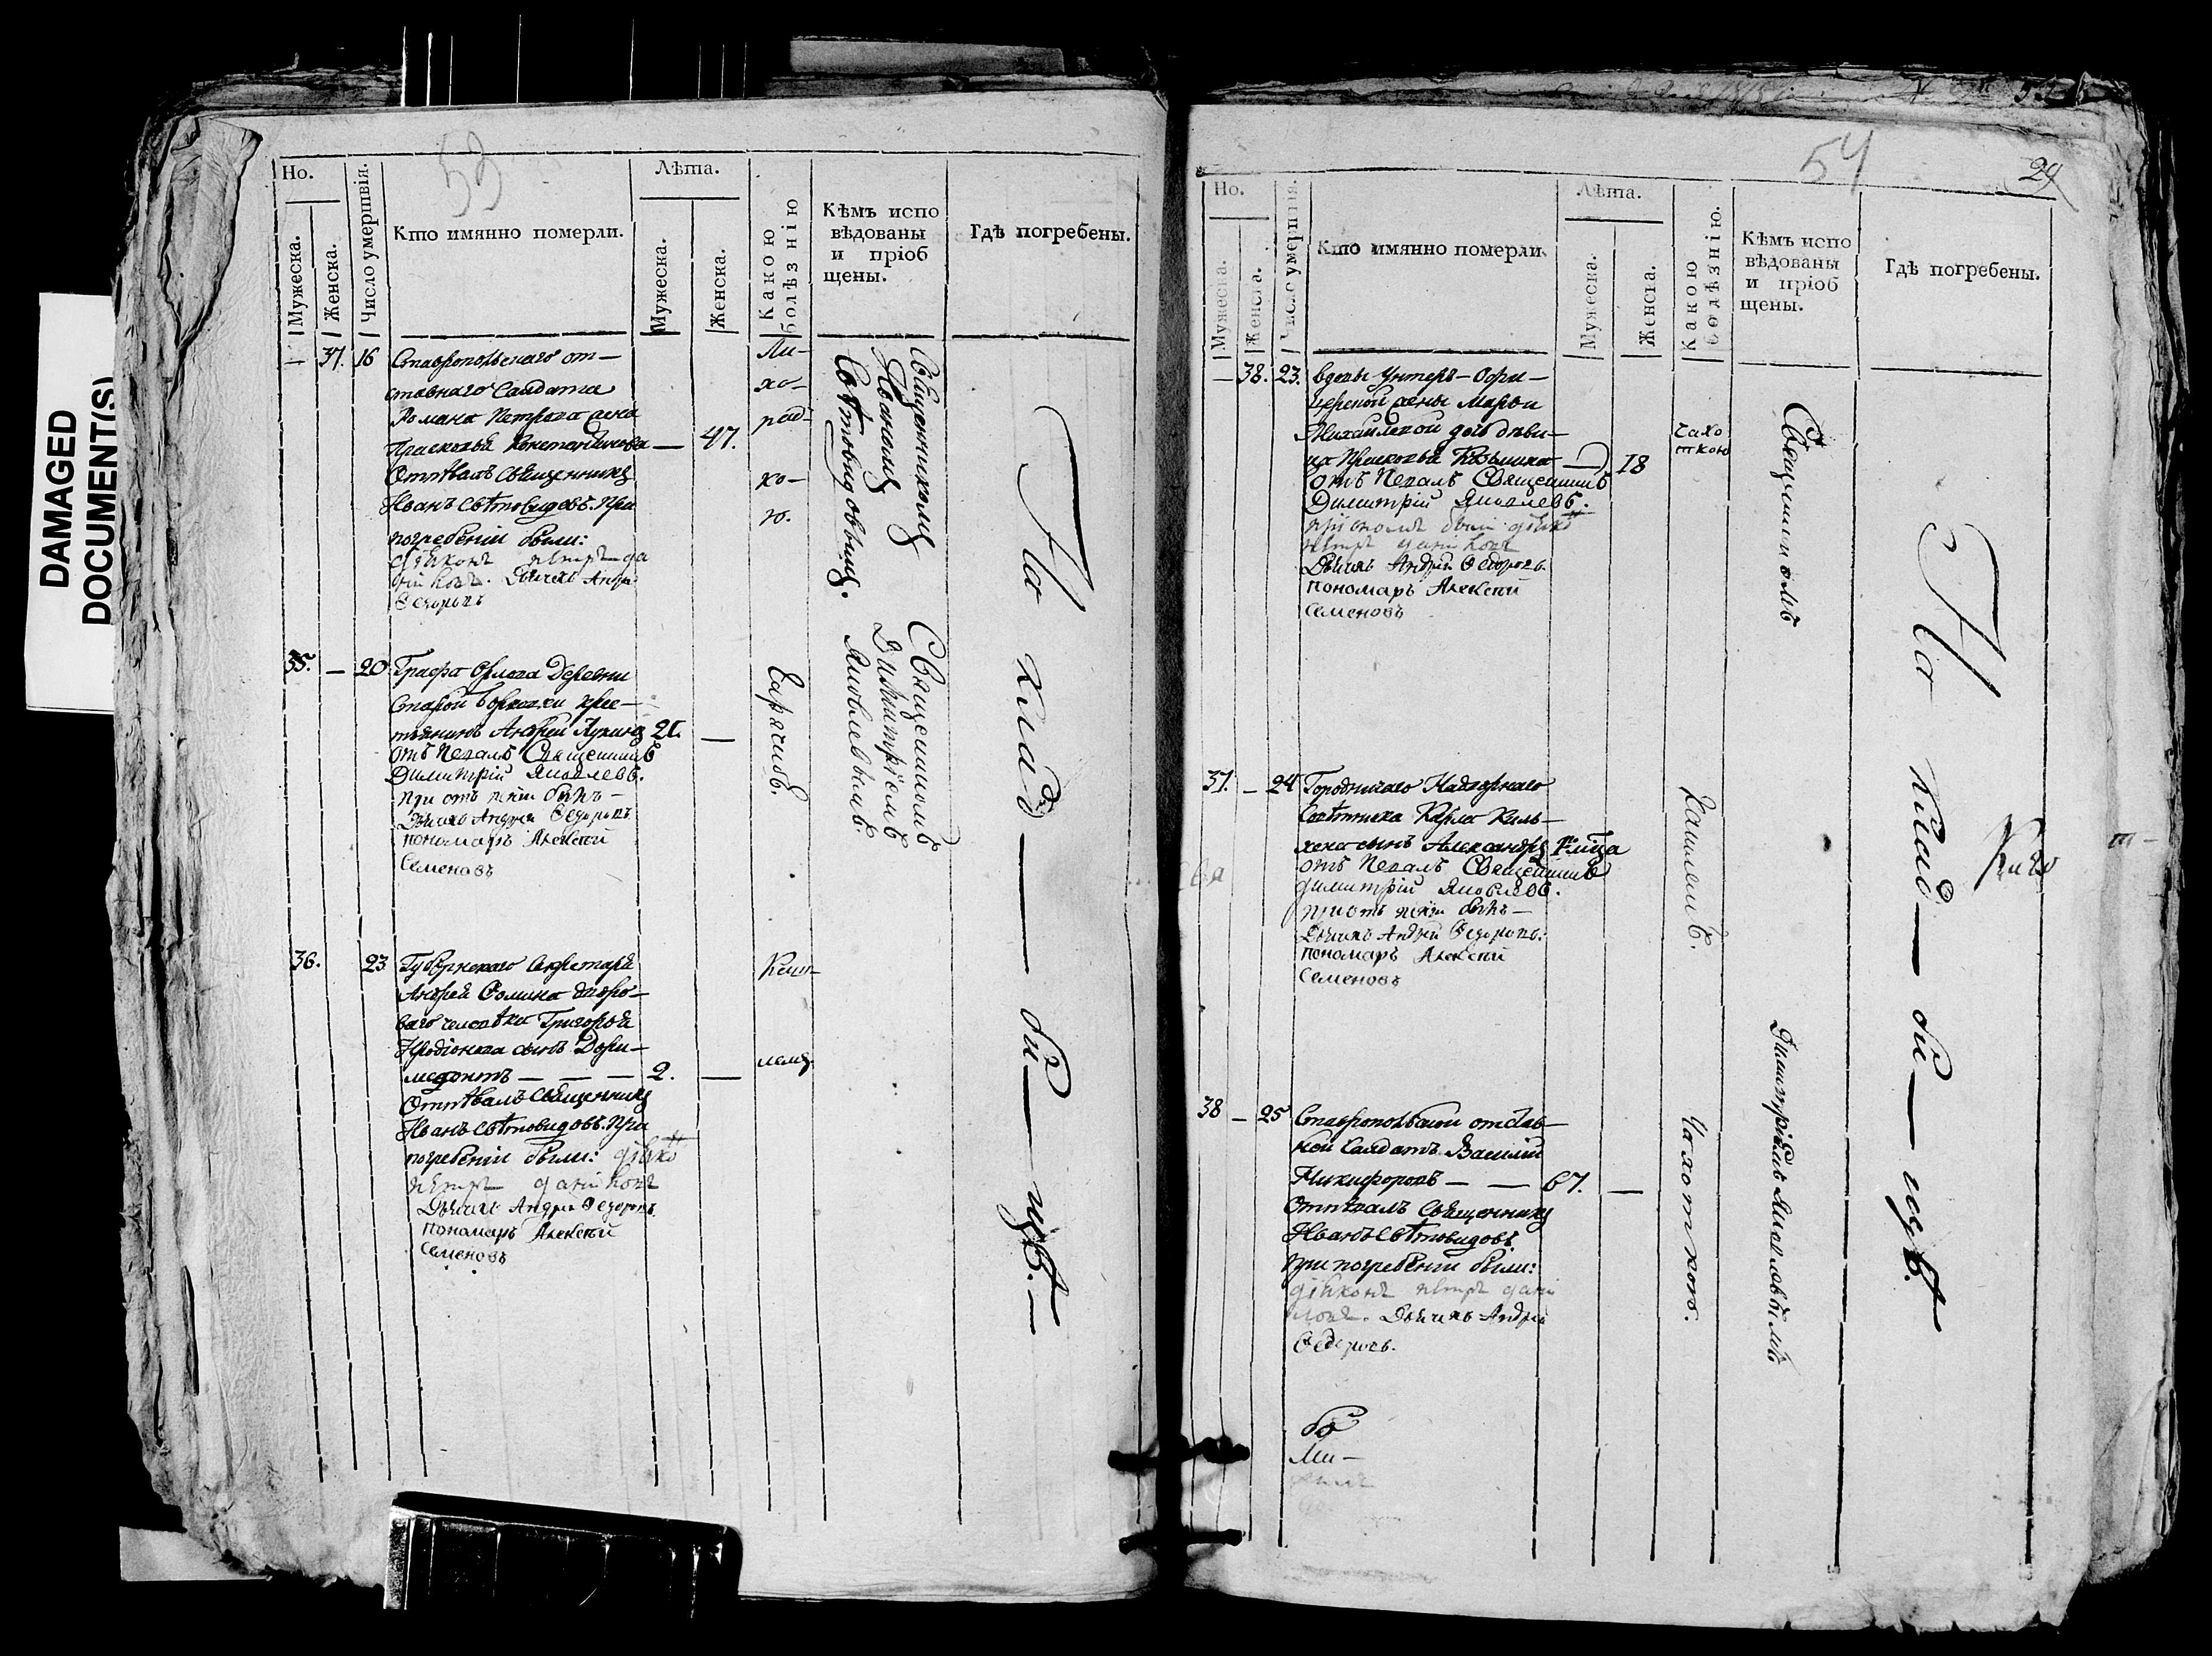 DAMAGED
DOCUMENT(S)
53
Но.
Мужеска.
Женска.
Число умертвія.
Кто имянно померли.
Лѣта.
Мужеска.
Женска.
Какою болѣзнію
Кѣмъ испо
вѣдованы
и пріоб
щены.
Гдѣ погребены.
— 37. 16 Ставропольскаго от—
ставнаго Салдата
Романа Петрова жена
Прасковья Константинова — 47.
Отпѣвалъ Священникъ
Иванъ Свѣтовидовъ. При
погребеніи были:
діяконъ петръ да
Дьячекъ Андрѣ
Ѳедоровъ
Ли—
хо—
рад—
ко—
ю.
Священникомъ
Иваномъ
Свѣтовидовымъ.
35. — 20 Графа Орлова Деревни
Старой крес—
тьянинъ Андрей 21. —
отъ Певалъ Священникъ
Димитрій Яковлевъ.
при отъ пѣніи былъ—
Дьячекъ Андрей Ѳедоровъ
пономарь Алексѣй
Семеновъ
Горячкою.
Священникомъ
Димитріемъ
Яковлевымъ.
36. 23 Губернскаго Секретаря
Андрея Фомина дворо—
ваго человѣка Григорья
Иродіонова сынъ Дори—
медонтъ — — — 2. —
Отпѣвалъ Священникъ
Иванъ Свѣтовидовъ. При
погребеніи были: діяко
петръ
Дьячекъ Андрѣ Ѳедоровъ
пономарь Алексѣй
Семеновъ
Каш—
лемъ
На клад— би— щѣ.—
54
29
Но.
Мужеска.
Женска.
Число умертвія.
Кто имянно померли.
Лѣта.
Мужеска.
Женска.
Какою болѣзнію.
Кѣмъ испо
вѣдованы
и пріоб
щены.
Гдѣ погребены.
— 38. 23. вдовы Унтеръ—Офи—
церской жены Марьи
Михайловой дочь дѣви—
ца Прасковья Козьмина — 18
отъ Певалъ Священникъ
Димитрій Яковлевъ.
были діяко
петръ
Дьячекъ Андрѣй Ѳедоровъ
пономарь Алексѣй
Семеновъ
чахо
ткою
Священникомъ
37. — 24 Городничаго Надворнаго
Совѣтника Карла
сынъ Александръ
отъ Певалъ Священникъ
Димитрій Яковлевъ.
при отъ пѣніи былъ—
Дьячекъ Андрѣй Ѳедоровъ.
пономарь Алексѣй
Семеновъ
Кашлемъ.
38 — 25 Ставропольской отстав—
ной Салдатъ Василій
Никифоровъ — — 67. —
Отпѣвалъ Священникъ
Иванъ Свѣтовидовъ
при погребеніи были:
діяконъ петръ дани
ловъ. Дьячекъ Андрѣй
Ѳедоровъ.
Чахоткою.
Димитріемъ Яковлевымъ
На клад— би— щѣ.
Ми—